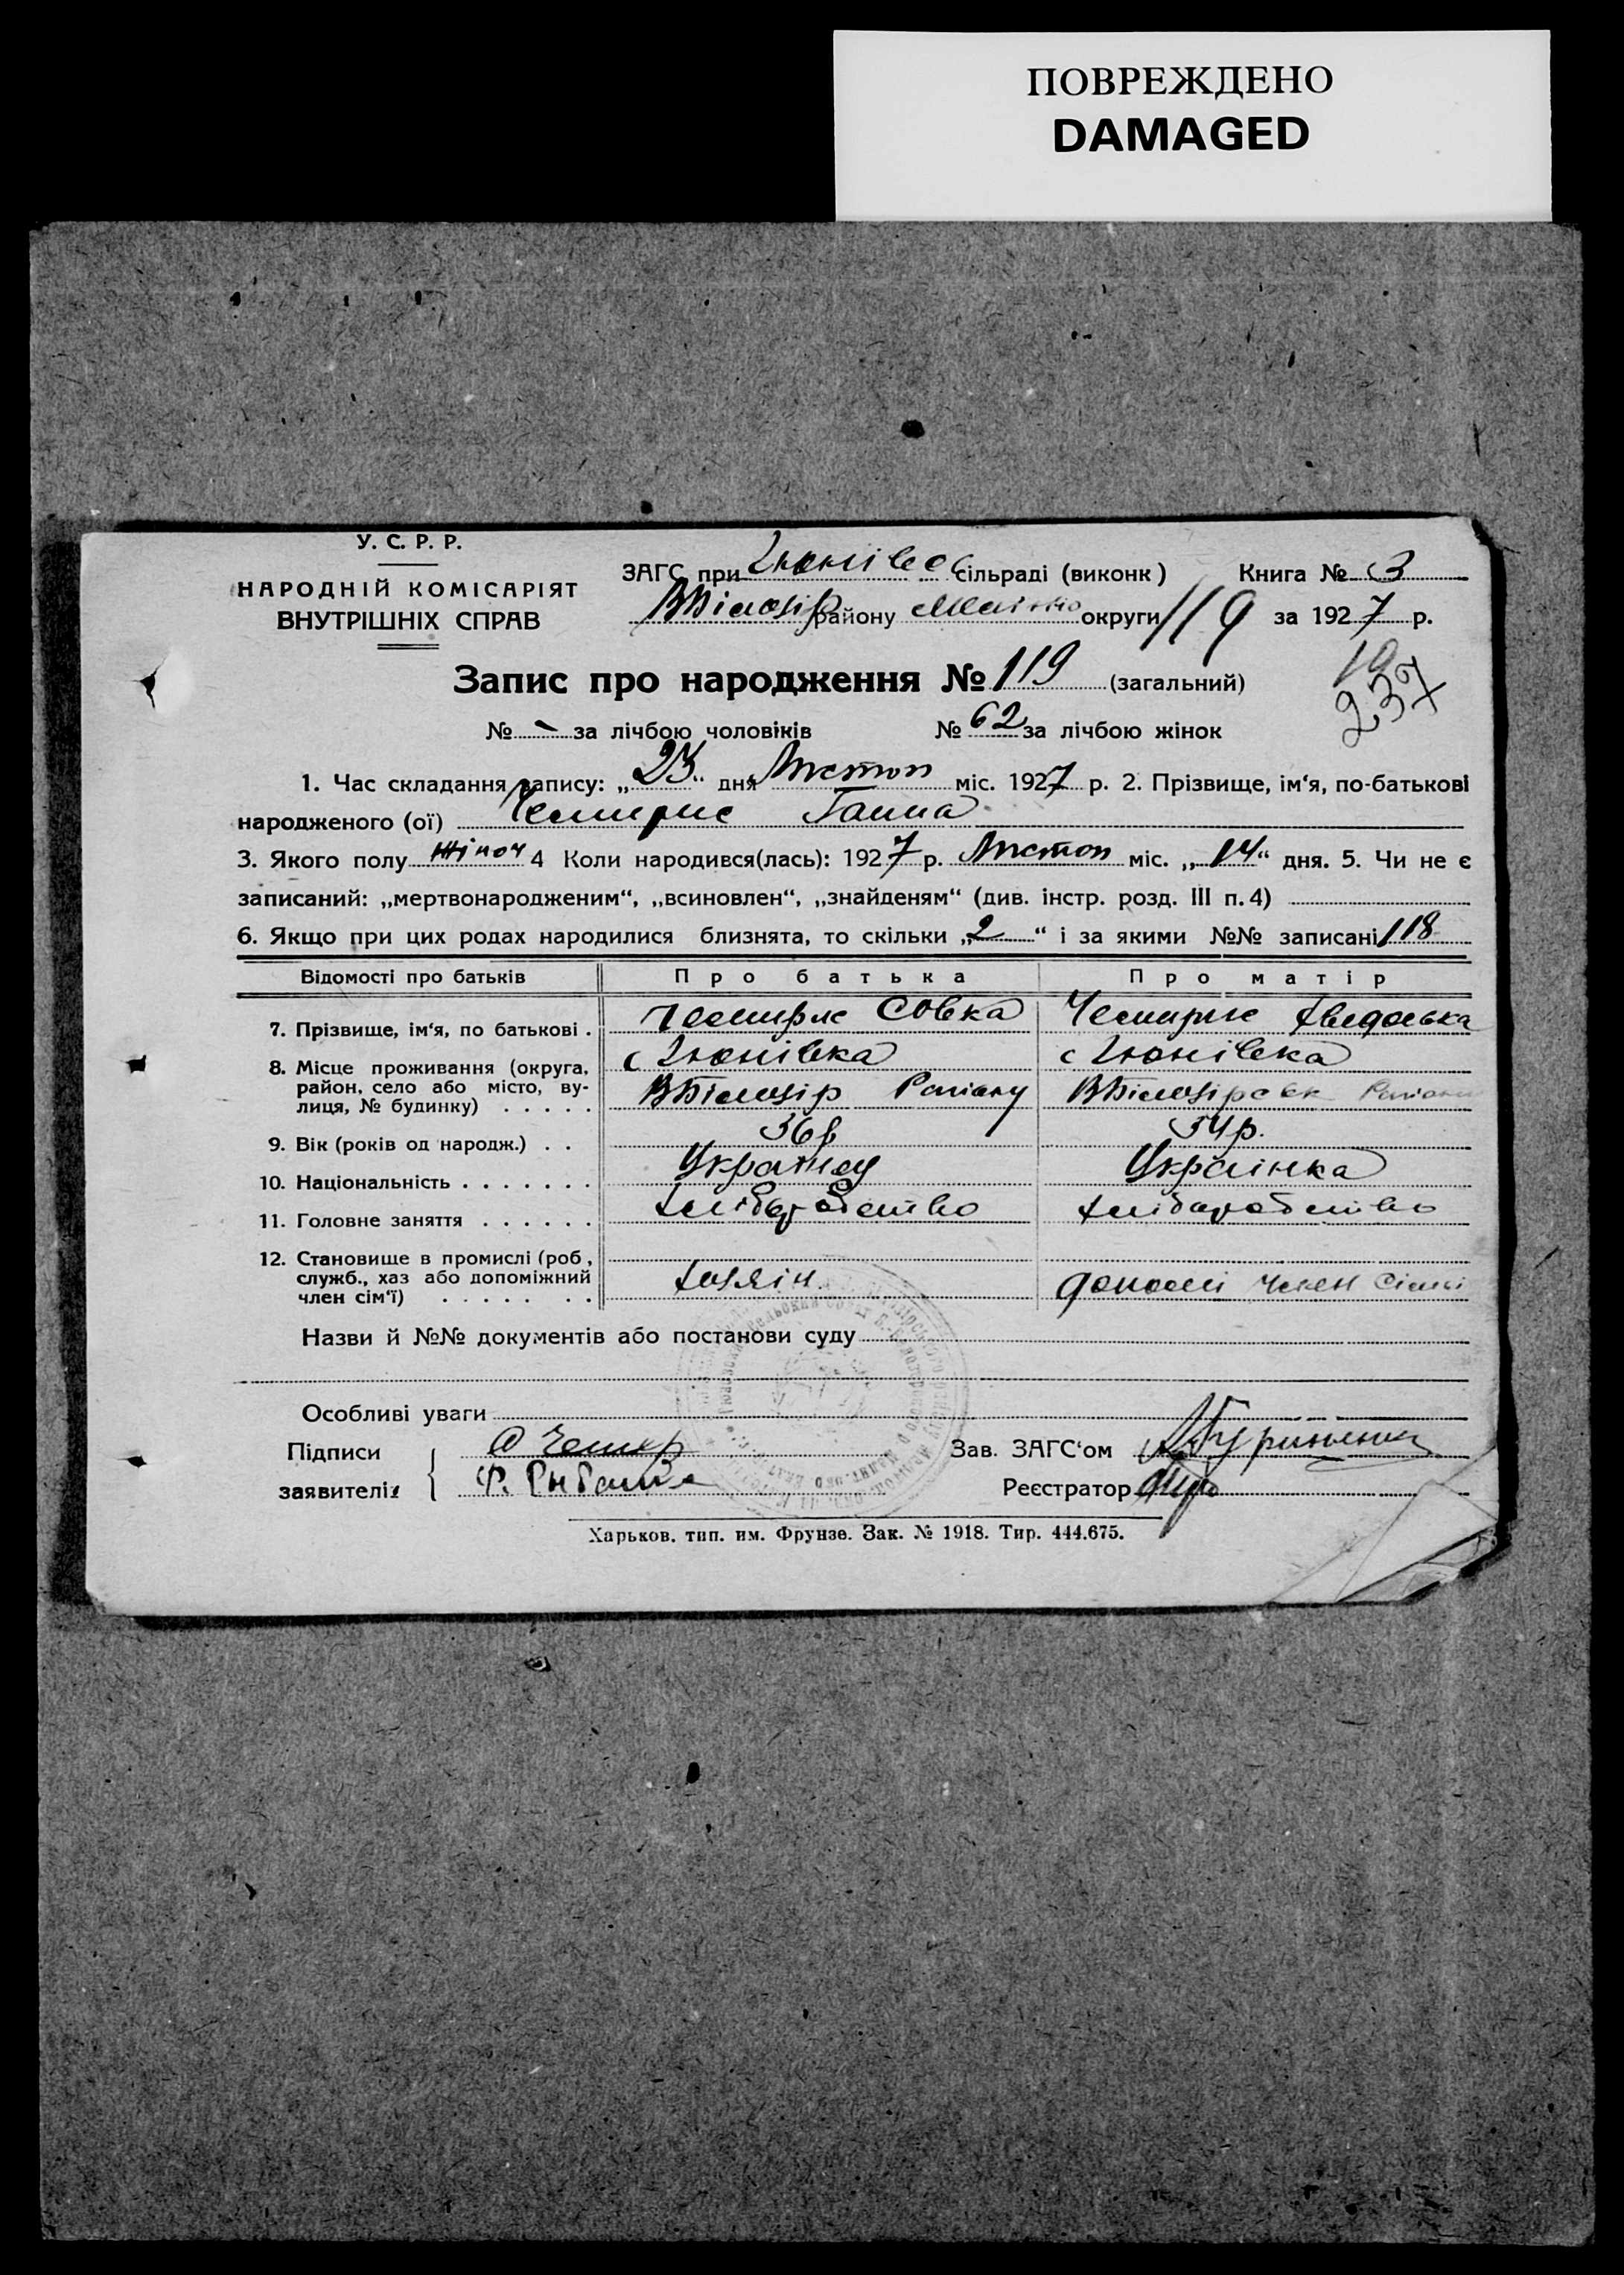 ПОВРЕЖДЕНО
DAMAGED
У. С. Р. Р.
НАРОДНІЙ КОМІСАРІЯТ
ВНУТРІШНІХ СПРАВ
ЗАГС при сільраді (виконк) Книга № 3
району округи 119 за 1927 р.
19
237
Запис про народження № 119 (загальний)
№ - за лічбою чоловіків № 62 за лічбою жінок
1. Час складання запису: „ “ дня Листоп міс. 1927 р. 2. Прізвище, ім‘я, по-батькові
народженого (ої) Чемирис Ганна
3. Якого полу жіноч 4 Коли народився(лась): 1927 р. Листоп міс. „14“ дня. 5. Чи не є
записаний: „мертвонародженим“, „всиновлен“, „знайденям“ (див. інстр. розд. III п. 4)
6. Якщо при цих родах народилися близнята, то скільки „2“ і за якими №№ записані 118
Відомості про батьків Про батька Про матір
7. Прізвище, ім‘я, по батькові . Чемирис Совка Чемирис
8. Місце проживання (округа, с Юнівка с Юнівка
район, село або місто, ву-
лиця, № будинку) . . . . . ВБілозір Району ВБілозірськ Району
9. Вік (років од народж.) . . 36р 34р.
10. Національність . . . . . . . Українец Українка
11. Головне заняття . . . . . . хліборобство хліборобство
12. Становище в промислі (роб,
служб., хаз або допоміжний хазяін допомі член сімі
член сім‘ї) . . . . . . .
Назви й №№ документів або постанови суду
Особливі уваги
Підписи Зав. ЗАГС‘ом
заявителів Ф. Рибалка Реєстратор
Харьков. тип. им. Фрунзе. Зак. № 1918. Тир. 444.675.